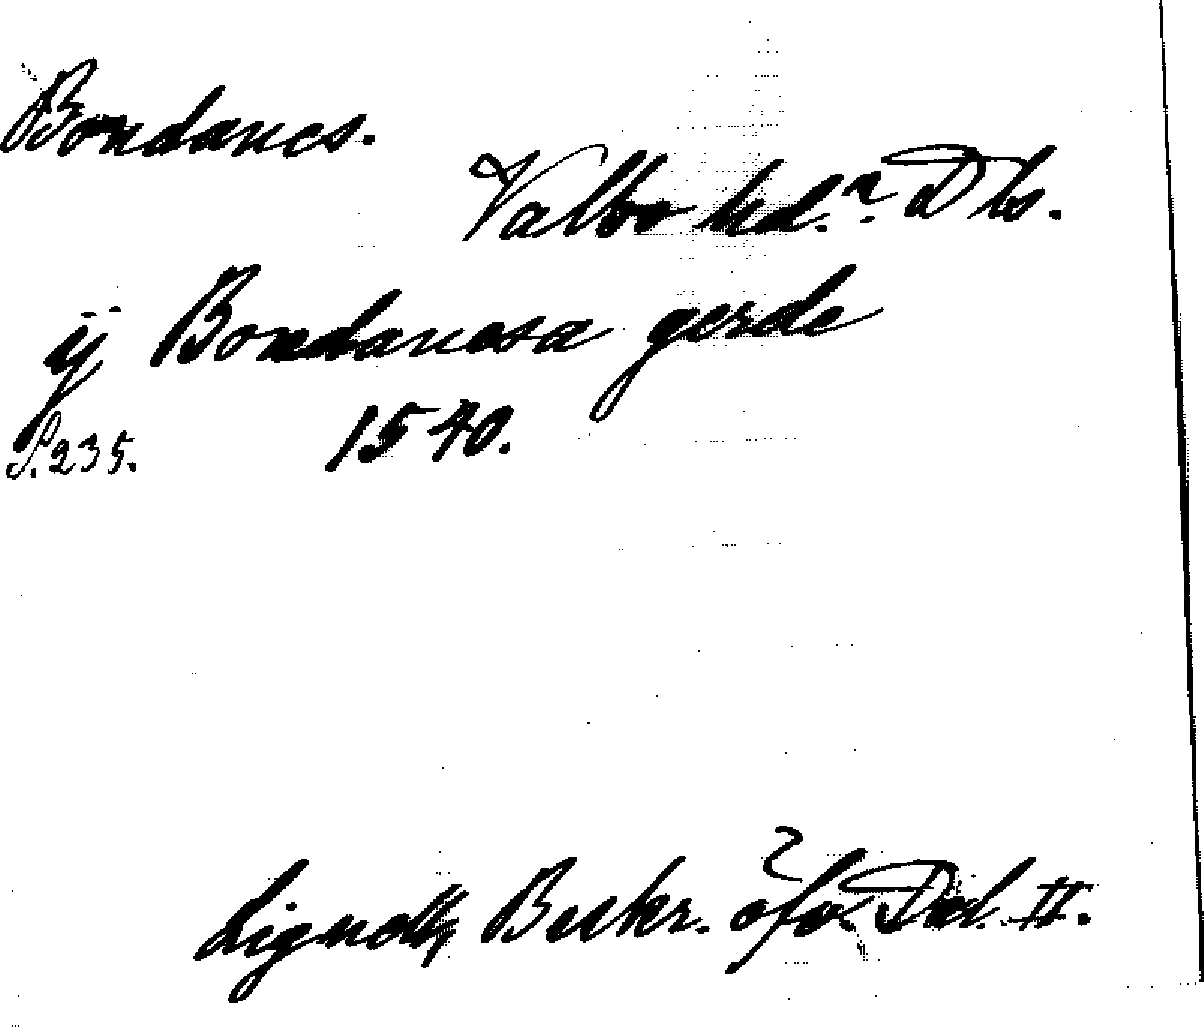 Bondanes.
Valbo hd.? Dls.
ij Bondanesa gerde
S. 235. 1540.
Lignell, Beskr. öfv. Dal. II.